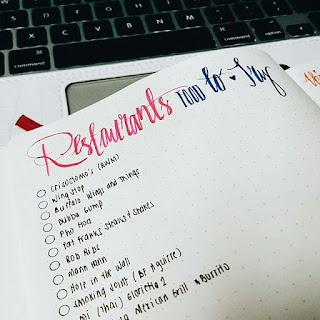 command
option
command
Restaurants FOOD to Try
Crisostomo's (RWM)
Wing Stop
Buffalo Wings and Things
Bubba Gump
Pho Hoa
Fat Franks Steaks & Shakes
Rob Ribs
Mann Hann
Hole in the Wall
Smoking Joint (BF Aguirre)
Mi (Thai) Glorietta 2
Mexican Grill * Burrito